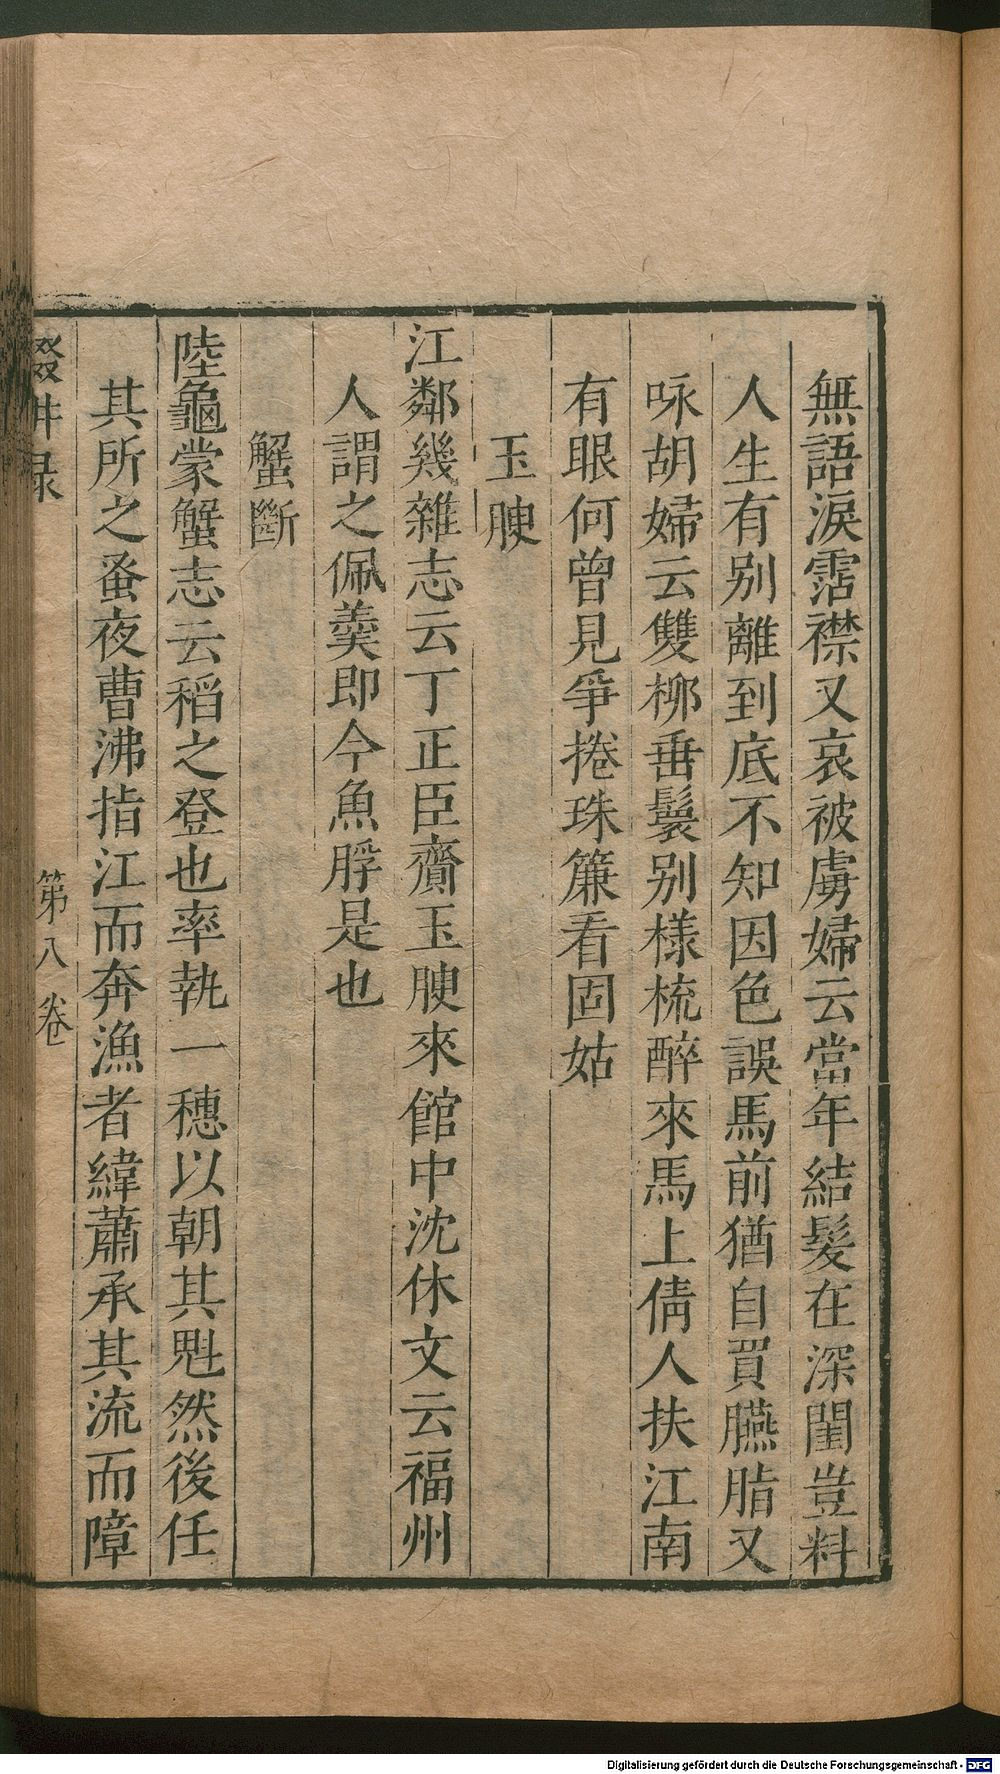 無語淚霑襟又哀被虜婦云當年結髮在深閨豈料
人生有别離到底不知因色誤馬前猶自買臙脂又
咏胡婦云雙柳垂鬟别樣梳醉來馬上倩人扶江南
有眼何曾見爭捲珠簾看固姑
玉腴
江鄰幾雜志云丁正臣齎玉腴來館中沈休文云福州
人謂之佩羹即今魚脬是也
蟹斷
陸龜蒙蟹志云稻之登也率執一穗以朝其魁然後任
其所之蚤夜曹沸指江而奔漁者緯蕭承其流而障
輟耕录
第八卷
Digitalisierung gefördert durch die Deutsche Forschungsgemeinschaft - DFG